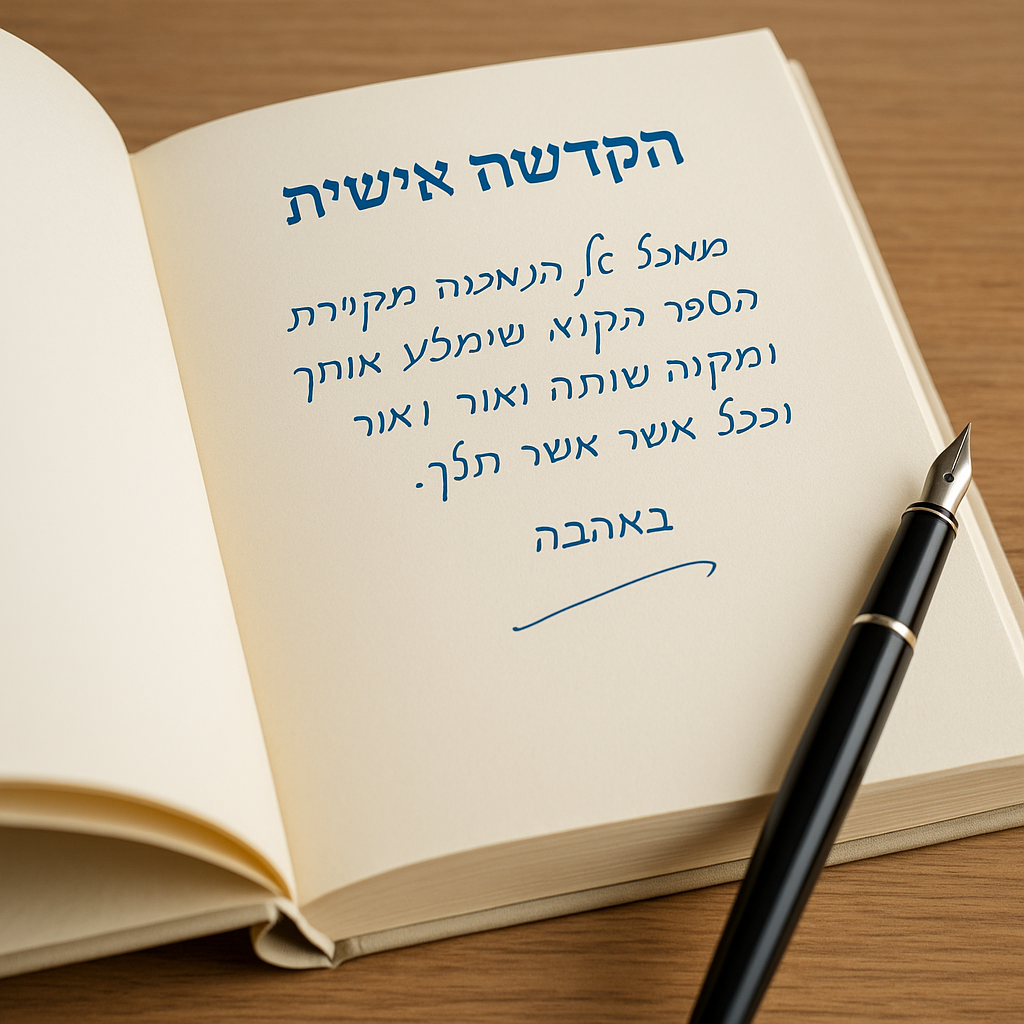 הקדשה אישית
מאכל אל הנאכוה מקוירת
הספר הקוא שימלע אותך
ומקוה שותה ואור ואור
וככל אשר אשר תלך.
באהבה